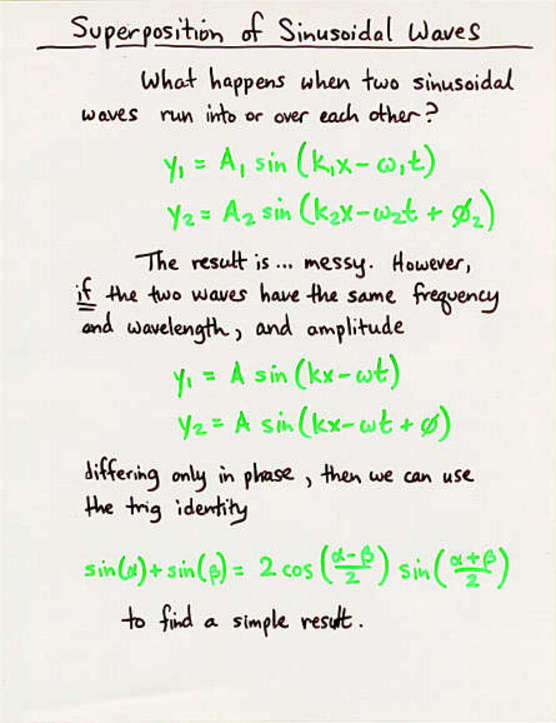 Superposition of Sinusoidal Waves
What happens when two sinusoidal
waves run into or over each other?
y₁ = A₁ sin (k₁x - ω₁t)
y₂ = A₂ sin (k₂x - ω₂t + ø₂)
The result is ... messy. However,
if the two waves have the same frequency
and wavelength, and amplitude
y₁ = A sin (kx - ωt)
y₂ = A sin (kx - ωt + ø)
differing only in phase, then we can use
the trig identity
sin(α) + sin(β) = 2 cos ((α-β)/2) sin ((α+β)/2)
to find a simple result.